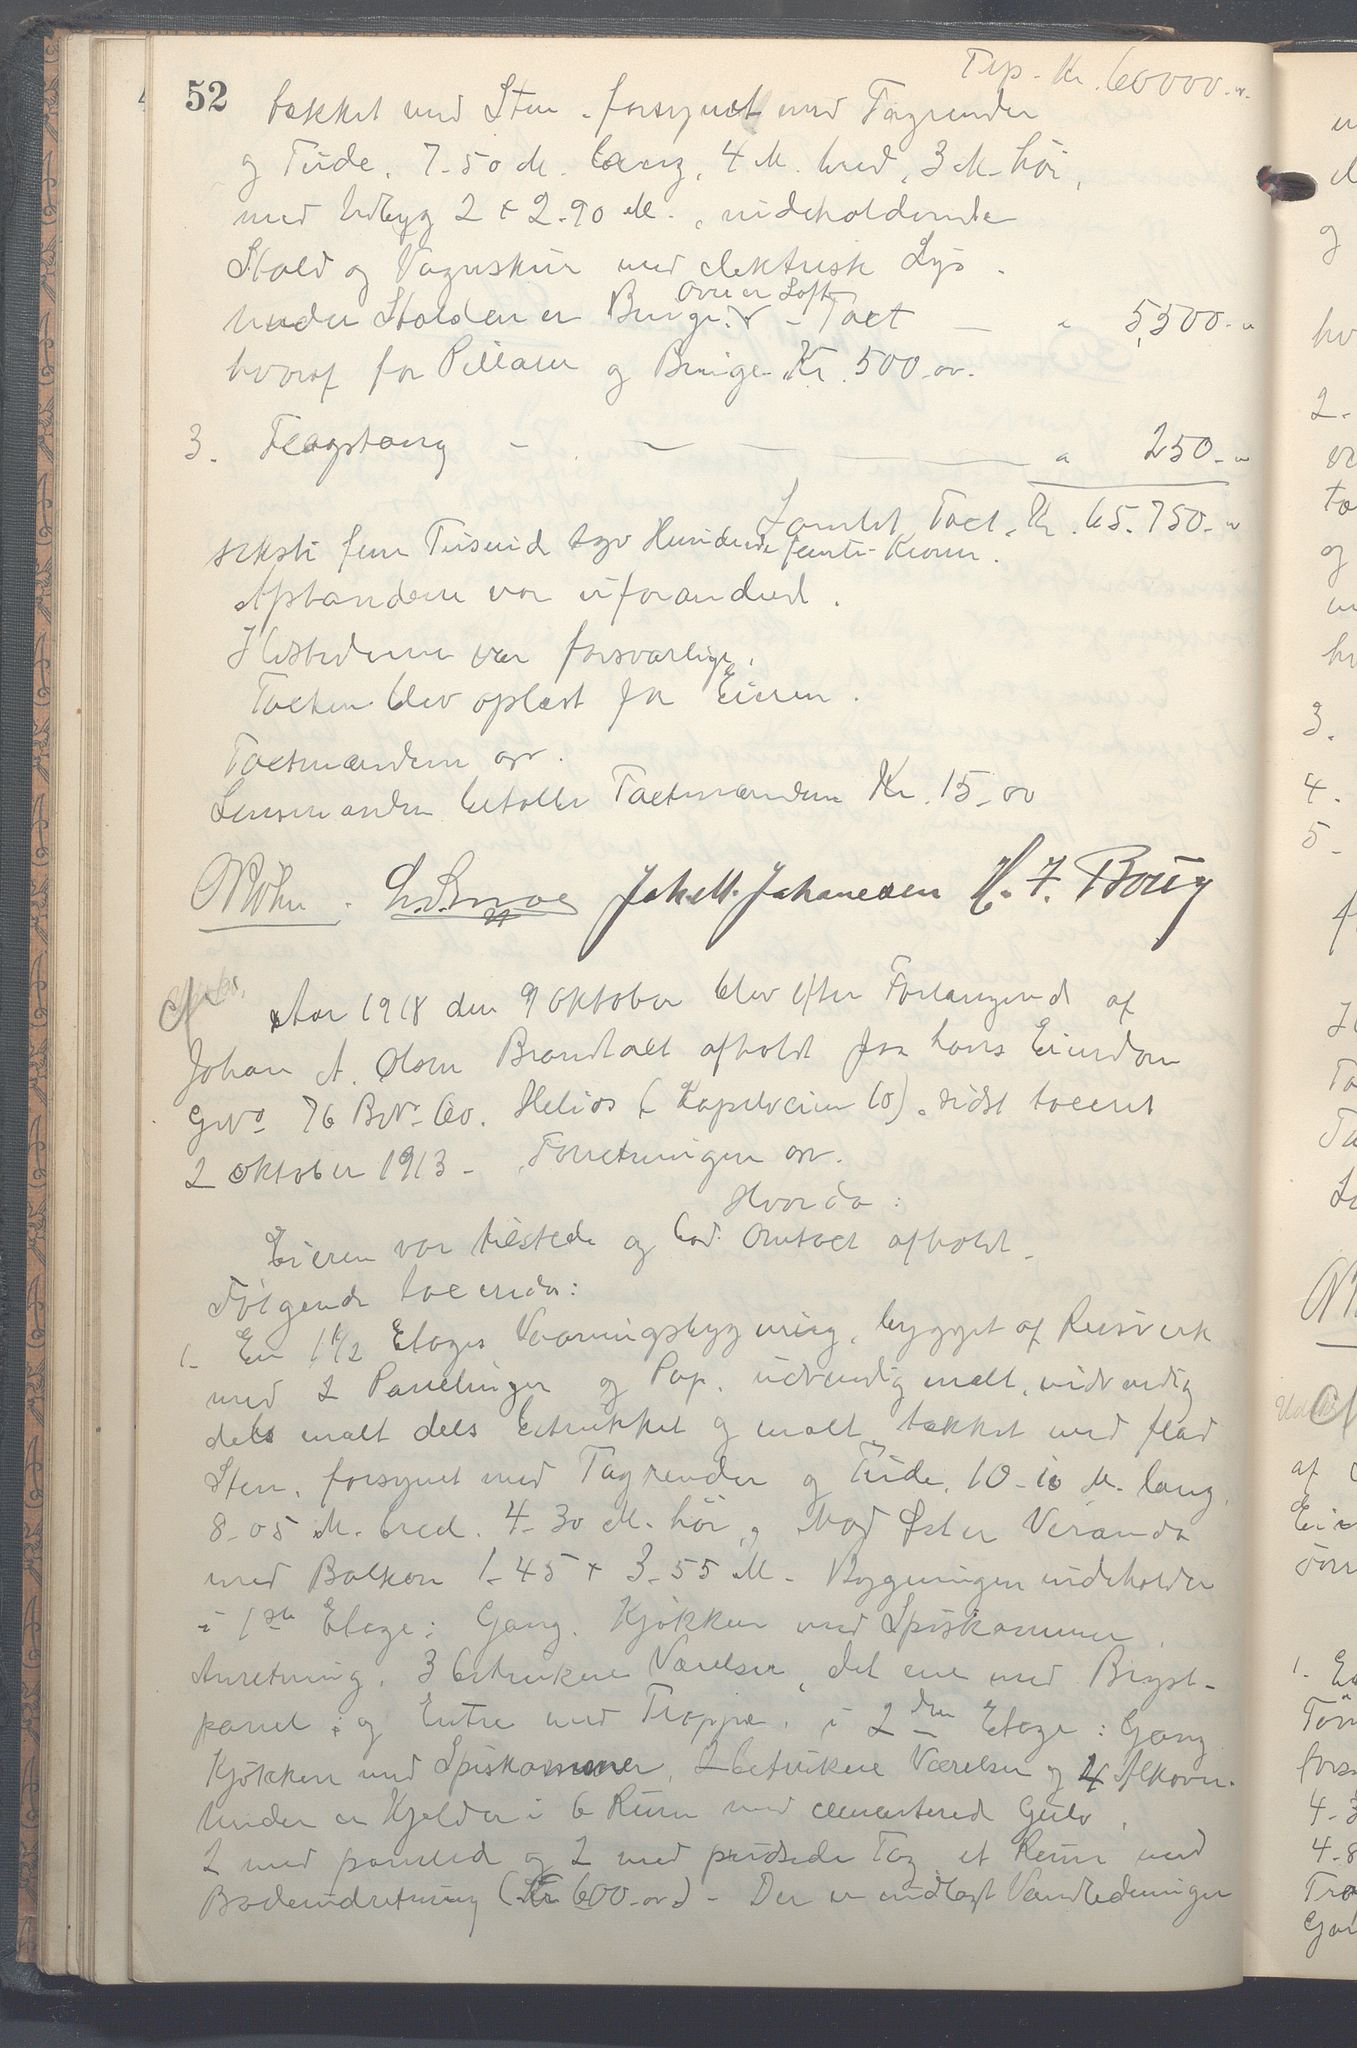 52
Trp. Kr. 60000.-
tækket med Sten, forsynet med Tagrender
og Tude, 7.50 M. lang, 4 M. bred, 3 M. høi,
med Udbyg 2 + 2.90 M., indeholdende
Stald og Vognskur med elektrisk Lys.
over er Loft
Under Stalden er Binge. Taxt — " 5,500.-
hvoraf for Pillarer og Binge Kr. 500.00.
3. Flagstang — — — " 250.-
Samlet Taxt. Kr. 65.750.-
seksti fem Tusind syv Hundrede femti Kroner.
Afstandene var uforandret.
Ildstederne var forsvarlige.
Taxten blev oplæst for Eieren.
Taxtmændene osv.
Lensmanden betalte Taxtmændene Kr. 15.00
Joh. M. Johanesen H. F. Borig
Aar 1918 den 9 oktober blev efter Forlangende af
Johan A. Olsen Brandtaxt afholdt paa hans Eiendom
GNo 76 BNo 60. Helios (Kapelveien 10), sidst taxeret
2 oktober 1913 - Forretningen osv.
Hvorda:
Eieren var tilstede og bad Omtaxt afholdt.
Følgende taxeredes:
1. En 1 1/2 Etages Vaaningsbygning, bygget af Reisverk
med 2 Panelinger og Pap, udvendig malt, indvendig
dels malt dels betrukket og malt, tækket med flad
Sten, forsynet med Tagrender og Tude, 10.10 M. lang,
8.05 M. bred. 4.30 M. høi, Mod Øst er Veranda
med Balkon 1.45 + 3.55 M. Bygningen indeholder
i 1ste Etage: Gang, Kjøkken med Spiskammer,
Anretning, 3 betrukne Værelser, det ene med Bryst-
panel; og Entre med Trappe, i 2den Etage: Gang
Kjøkken med Spiskammer, 2 betrukne Værelser og 4 Alkover.
Under er Kjelder i 6 Rum med cementered Gulv,
2 med panelede og 2 med pudsede Tag et Rum med
Badeindretning (Kr 600.00) - Der er indlagt Vandledninger